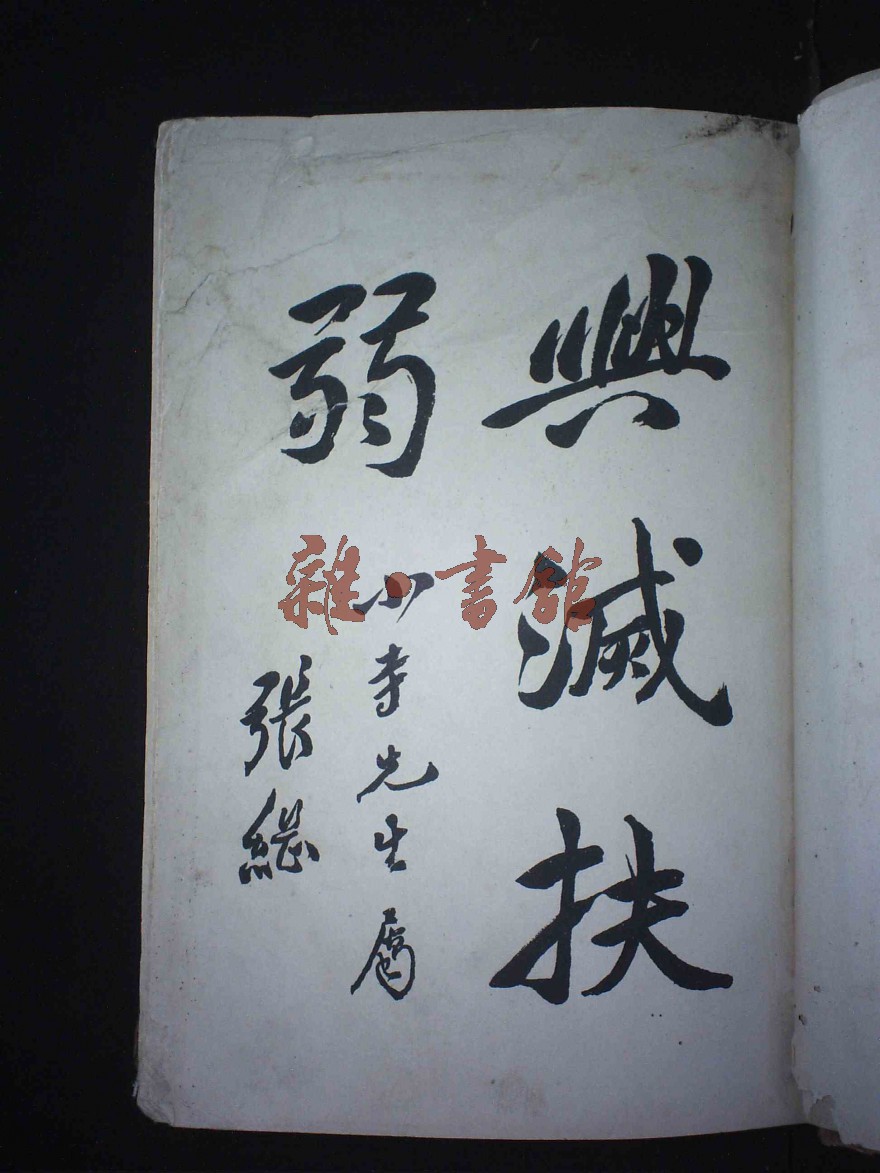 興滅扶
弱
小寺先生屬
張繼
雜·書館